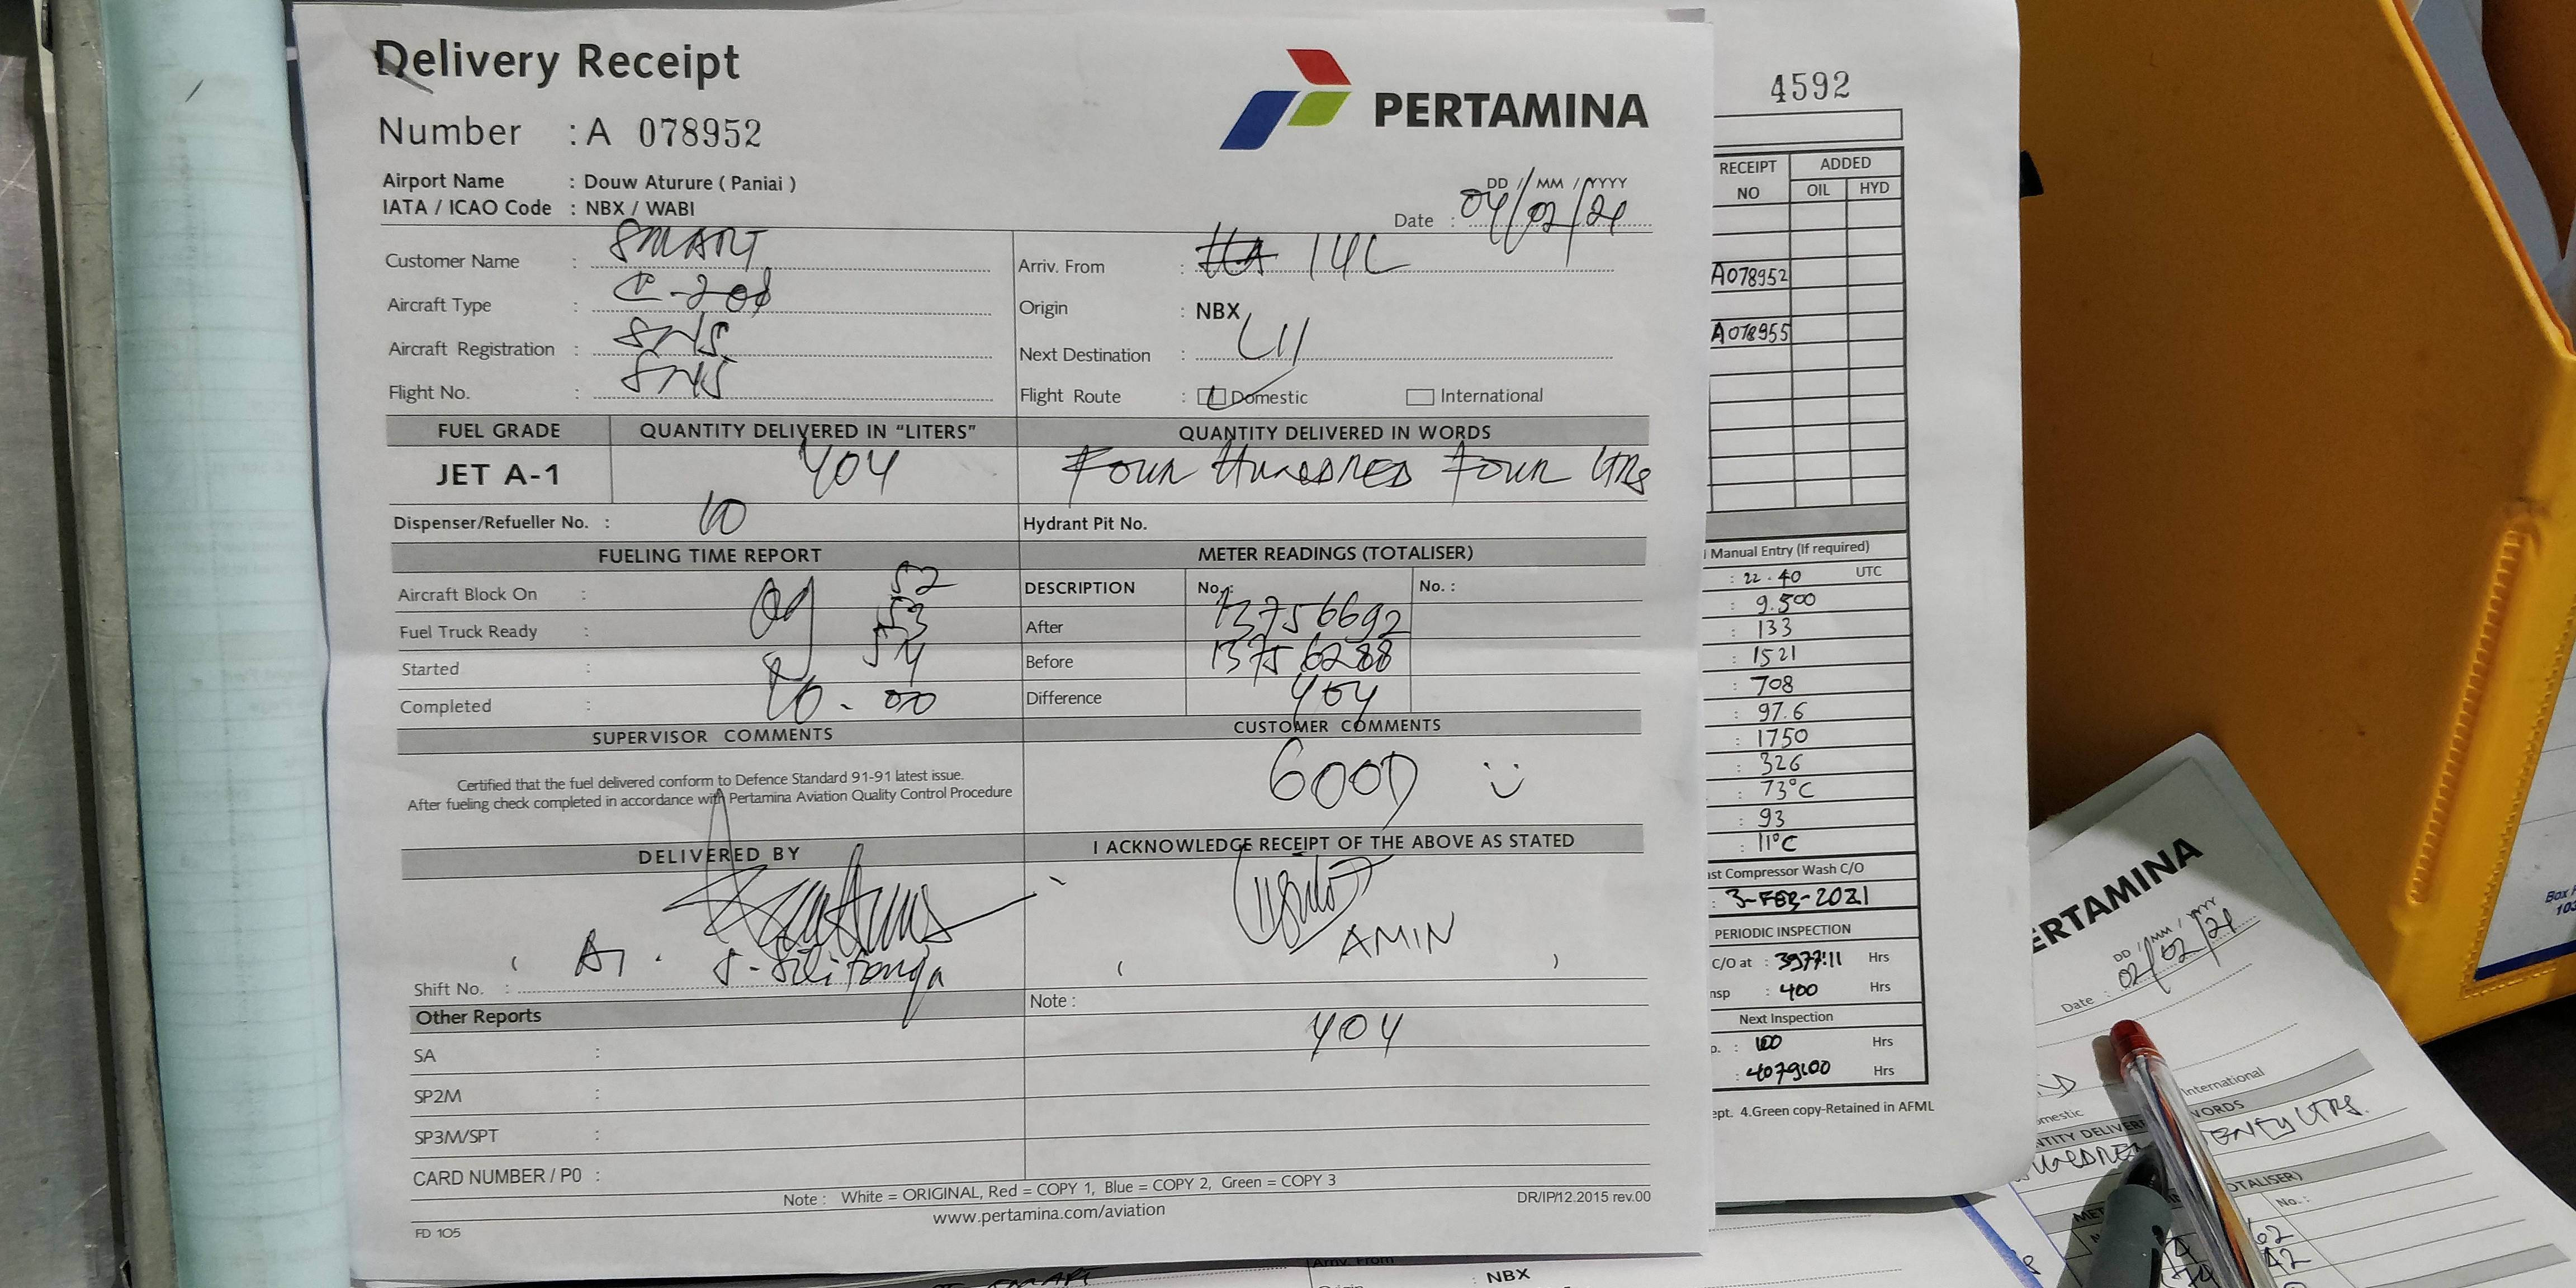 Delivery Receipt
PERTAMINA
Number : A 078952
Airport Name : Douw Aturure ( Paniai )
IATA / ICAO Code : NBX / WABI
DD / MM / YYYY
Date : 04/02/21
Customer Name : SMART
Arriv. From : 14C
Aircraft Type : C-208
Origin : NBX
Aircraft Registration : SNS
Next Destination :
Flight No. : SNS
Flight Route : Domestic International
FUEL GRADE QUANTITY DELIVERED IN "LITERS" QUANTITY DELIVERED IN WORDS
JET A-1 404 FOUR HUNDRED FOUR LTRS
Dispenser/Refueller No. : 10 Hydrant Pit No.
FUELING TIME REPORT METER READINGS (TOTALISER)
Aircraft Block On : 09 52 DESCRIPTION No.: No. :
Fuel Truck Ready : 53 After 13756692
Started : 54 Before 13756288
Completed : 10.00 Difference 404
SUPERVISOR COMMENTS CUSTOMER COMMENTS
Certified that the fuel delivered conform to Defence Standard 91-91 latest issue.
After fueling check completed in accordance with Pertamina Aviation Quality Control Procedure
GOOD
DELIVERED BY I ACKNOWLEDGE RECEIPT OF THE ABOVE AS STATED
( AMIN )
Shift No. :
Note :
Other Reports 404
SA :
SP2M :
SP3M/SPT :
CARD NUMBER / P0 :
Note : White = ORIGINAL, Red = COPY 1, Blue = COPY 2, Green = COPY 3
www.pertamina.com/aviation
DR/IP/12.2015 rev.00
FD 105
4592
RECEIPT NO ADDED
OIL HYD
A078952
A078955
Manual Entry (If required)
: 22.40 UTC
: 9.500
: 133
: 1521
: 708
: 97.6
: 1750
: 326
: 73°C
: 93
: 11°C
Compressor Wash C/O
: 3-FEB-2021
PERIODIC INSPECTION
C/O at : 3977:11 Hrs
: 400 Hrs
Next Inspection
: 100 Hrs
: 4079:00 Hrs
4.Green copy-Retained in AFML
ERTAMINA
DD / MM / YYYY
Date : 02/02/21
International
WORDS
LTRS.
No. :
NBX